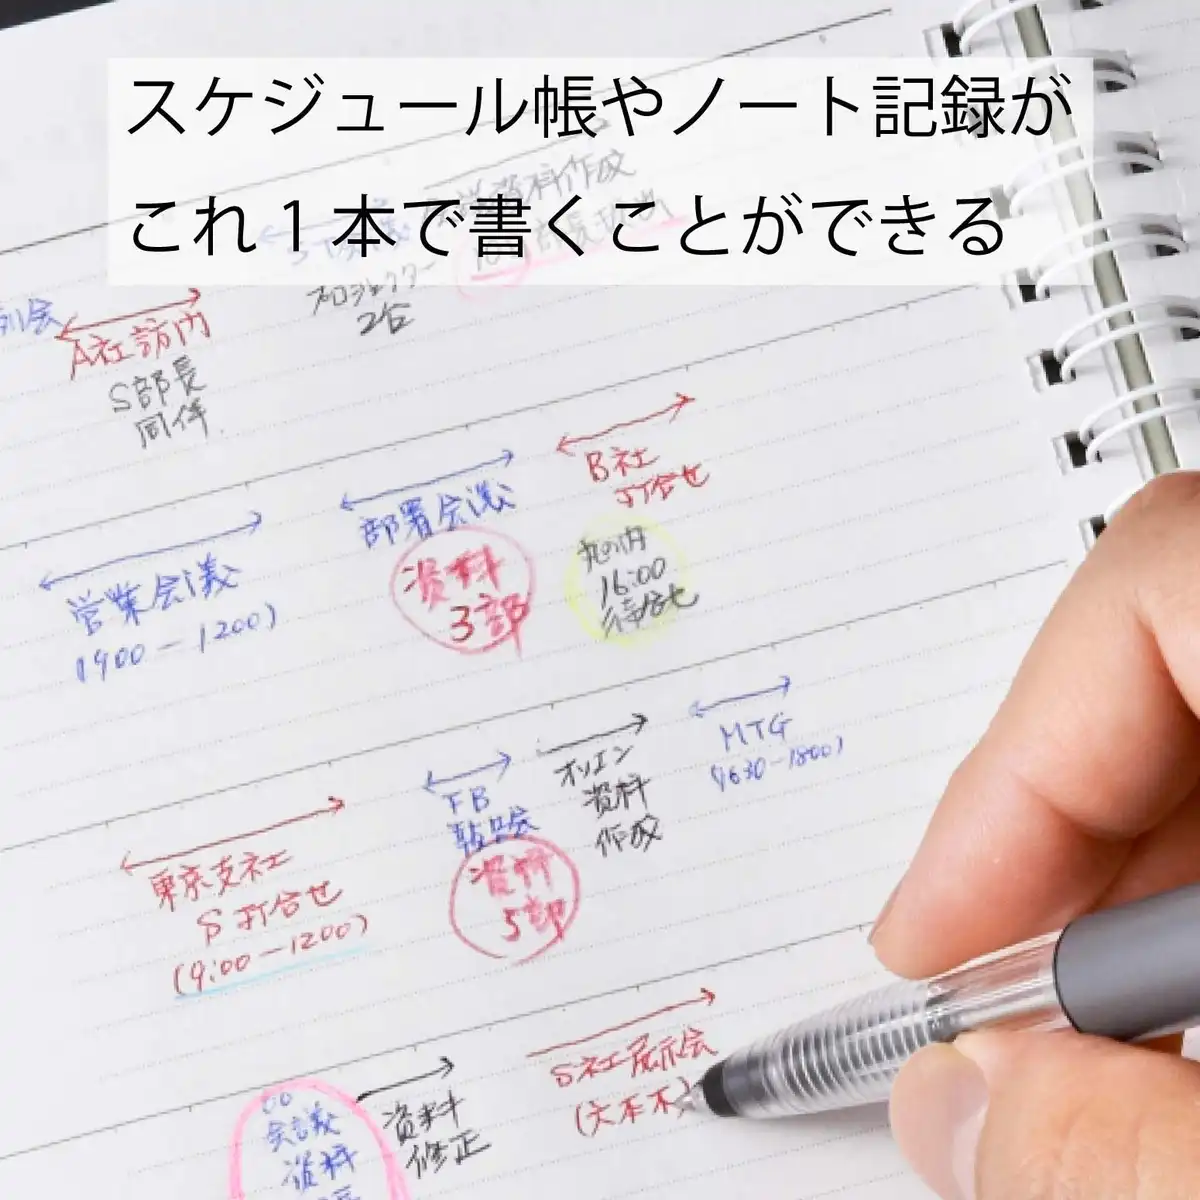 スケジュール帳やノート記録が
これ１本で書くことができる
資料作成
プロジェクター
2台
A社訪内
S部長
同伴
部署会議
資料
3部
B社
打合せ
丸の内
16:00
待合せ
営業会議
(900-1200)
MTG
(1630-1800)
オリエン
資料
作成
FB
報告会
資料
5部
東京支社
S打合せ
(9:00-1200)
S社展示会
(六本木)
資料
修正
会議
資料